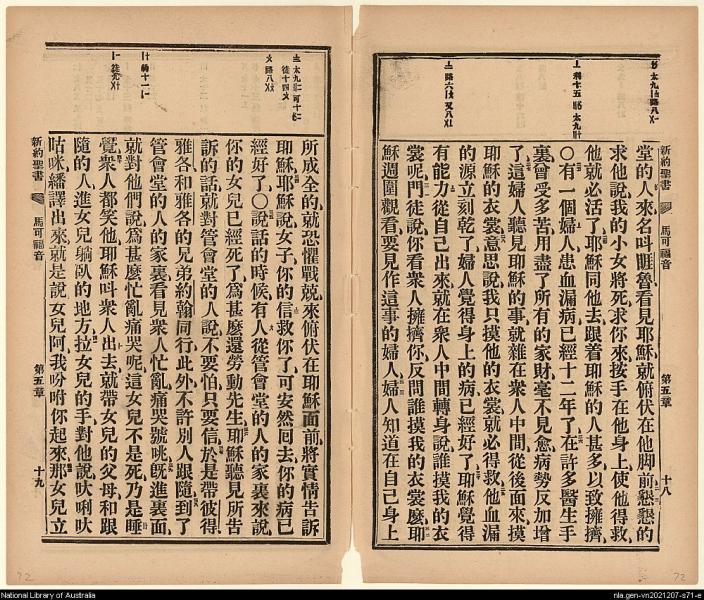 新約聖書 馬可福音 第五章 十八
堂的人來名呌睚魯看見耶穌就俯伏在他脚前懇懇的
求他說我的小女將死求你來按手在他身上使他得救
他就必活了耶穌同他去跟着耶穌的人甚多以致擁擠
○有一個婦人患血漏病已經十二年了在許多醫生手
裏曾受多苦用盡了所有的家財毫不見愈病勢反加增
了這婦人聽見耶穌的事就雜在衆人中間從後面來摸
耶穌的衣裳意思說我只摸他的衣裳就必得救他血漏
的源立刻乾了婦人覺得身上的病已經好了耶穌覺得
有能力從自己出來就在衆人中間轉身說誰摸我的衣
裳呢門徒說你看衆人擁擠你反問誰摸我的衣裳麼耶
穌週圍觀看要見作這事的婦人婦人知道在自己身上
所成全的就恐懼戰兢來俯伏在耶穌面前將實情告訴
耶穌耶穌說女子你的信救你了可安然回去你的病已
經好了○說話的時候有人從管會堂的人的家裏來說
你的女兒已經死了爲甚麽還勞動先生耶穌聽見所告
訴的話就對管會堂的人說不要怕只要信於是帶彼得
雅各和雅各的兄弟約翰同行此外不許別人跟隨到了
管會堂的人的家裏看見衆人忙亂痛哭號咷旣進裏面
就對他們說爲甚麽忙亂痛哭呢這女兒不是死乃是睡
覺衆人都笑他耶穌呌衆人出去就帶女兒的父母和跟
隨的人進女兒躺臥的地方拉女兒的手對他說吠唎吠
咕咪繙譯出來就是說女兒阿我吩咐你起來那女兒立
新約聖書 馬可福音 第五章 十九
72
72
National Library of Australia
nla.gen-vn2021207-s71-e